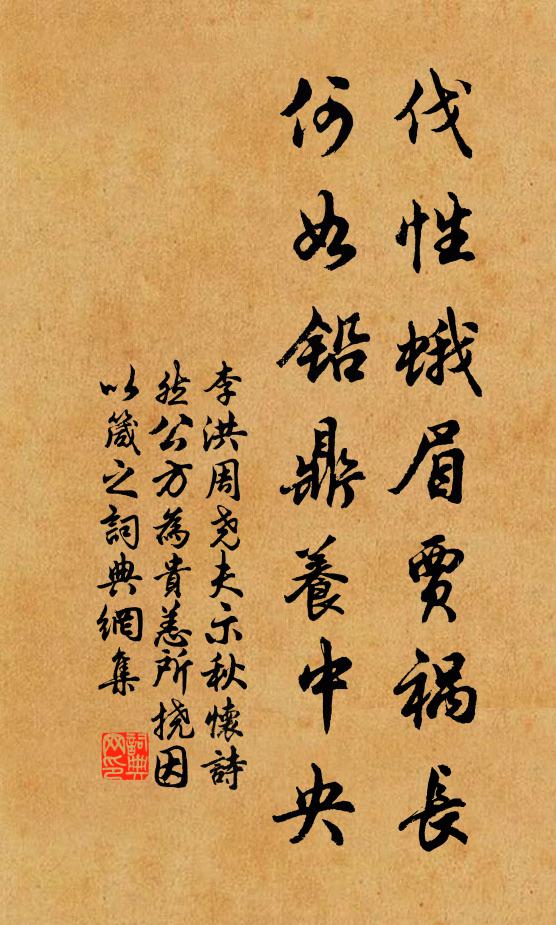 伐性蛾眉賈禍長
何如鉛鼎養中央
李洪周尧夫示秋懷詩
然公方為貴恙所撓因
以箴之詞典網集
詞典網印